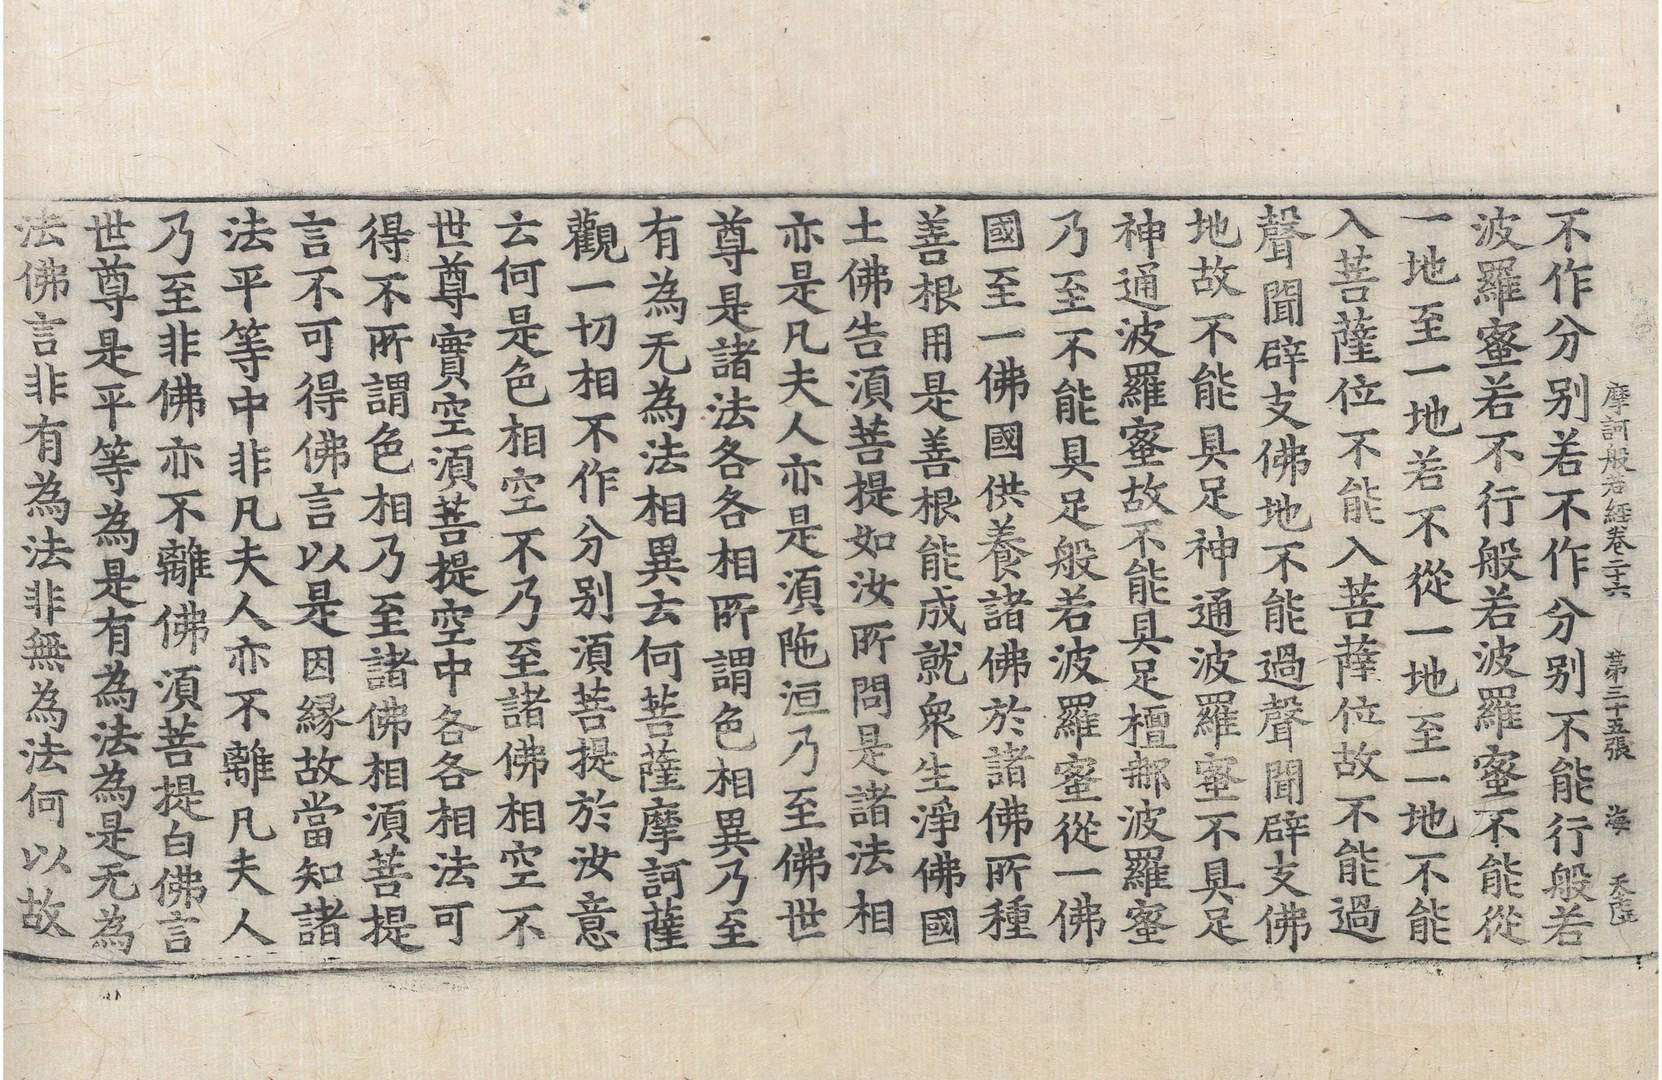 摩訶般若經卷二十六 第三十五張 海
不作分别若不作分别不能行般若
波羅蜜若不行般若波羅蜜不能從
一地至一地若不從一地至一地不能
入菩薩位不能入菩薩位故不能過
聲聞辟支佛地不能過聲聞辟支佛
地故不能具足神通波羅蜜不具足
神通波羅蜜故不能具足檀那波羅蜜
乃至不能具足般若波羅蜜從一佛
國至一佛國供養諸佛於諸佛所種
善根用是善根能成就衆生淨佛國
土佛告湏菩提如汝所問是諸法相
亦是凡夫人亦是湏陁洹乃至佛世
尊是諸法各各相所謂色相異乃至
有為无為法相異云何菩薩摩訶薩
觀一切相不作分别湏菩提於汝意
云何是色相空不乃至諸佛相空不
世尊實空湏菩提空中各各相法可
得不所謂色相乃至諸佛相湏菩提
言不可得佛言以是因縁故當知諸
法平等中非凡夫人亦不離凡夫人
乃至非佛亦不離佛湏菩提白佛言
世尊是平等為是有為法為是无為
法佛言非有為法非無為法何以故